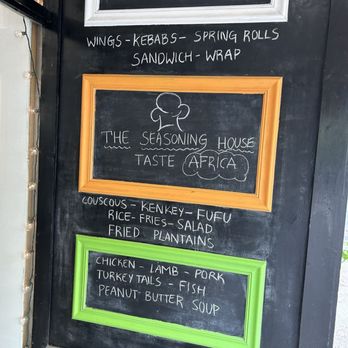 WINGS - KEBABS - SPRING ROLLS
SANDWICH - WRAP
THE SEASONING HOUSE
TASTE AFRICA
COUSCOUS - KENKEY - FUFU
RICE - FRIES - SALAD
FRIED PLANTAINS
CHICKEN - LAMB - PORK
TURKEY TAILS - FISH
PEANUT BUTTER SOUP